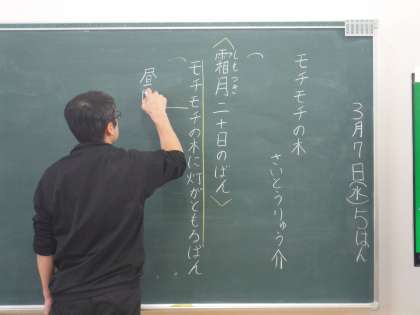 3月7日(水)5はん
モチモチの木
さいとうりゅう介
しもつき
〈霜月二十日のばん〉
モチモチの木に灯がともるばん
昼